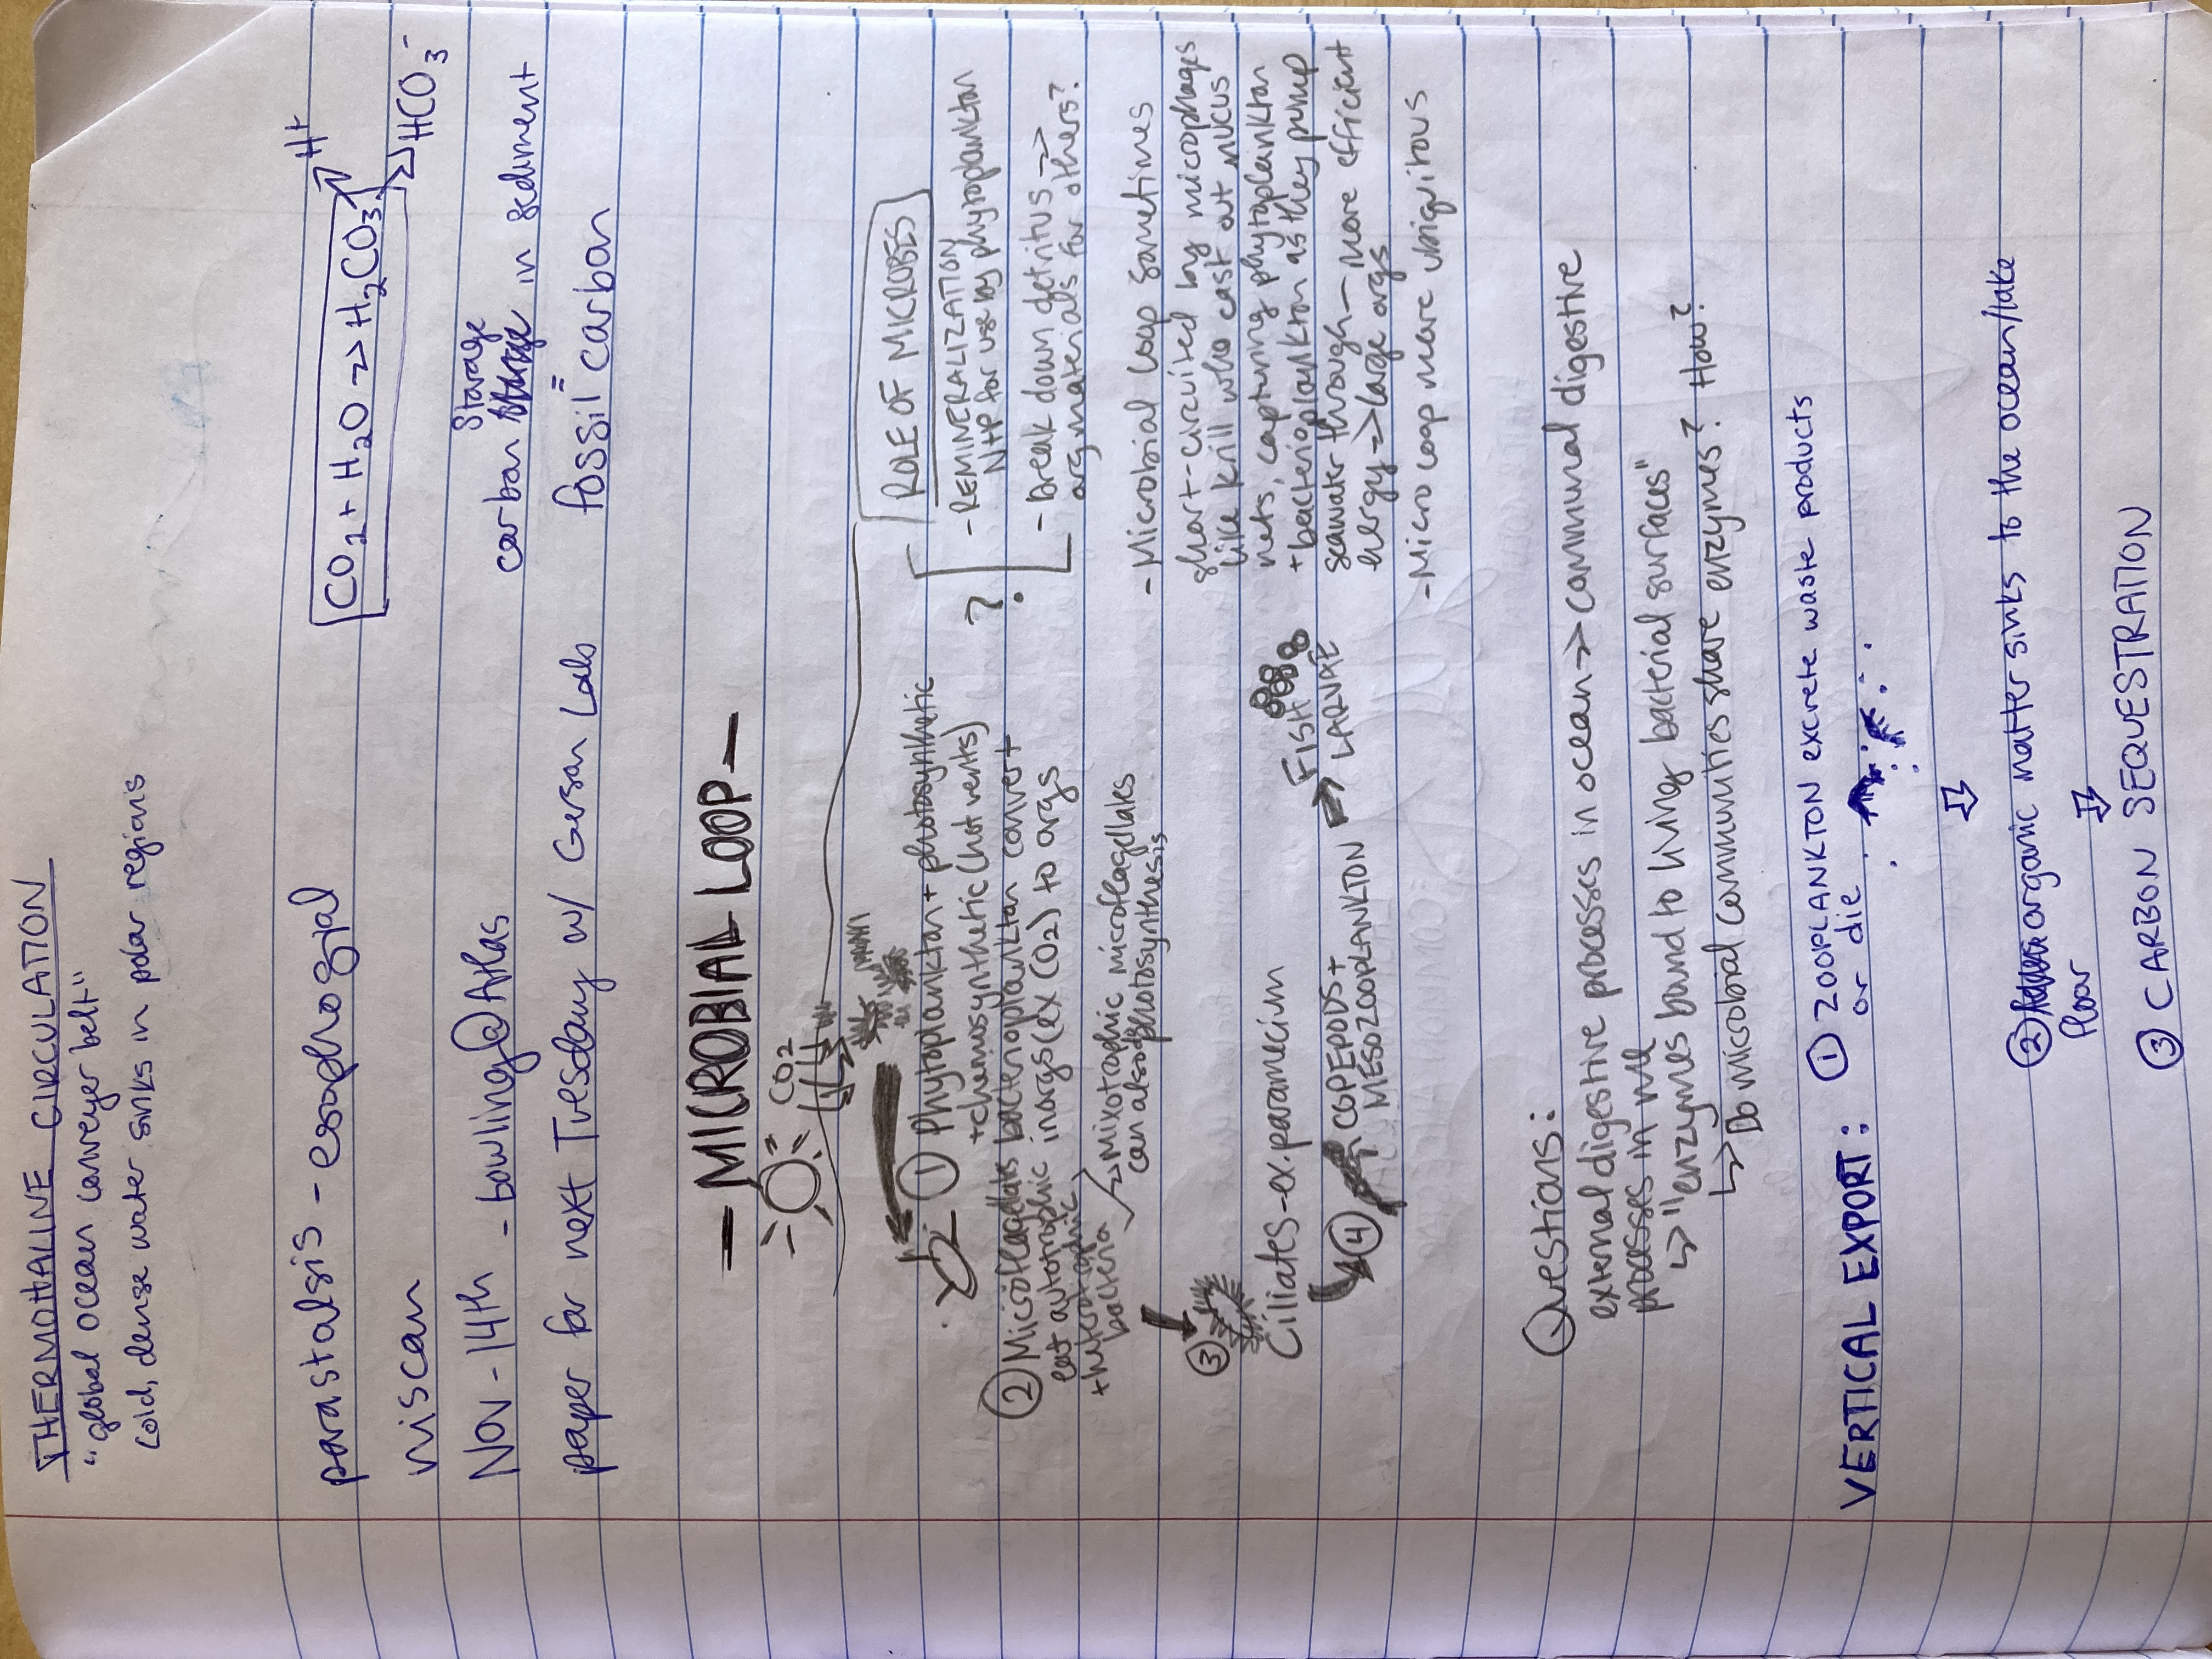 THERMOHALINE CIRCULATION
"global ocean conveyer belt"
cold, dense water sinks in polar regions
parastalsis - esophogial
niscan
Nov - 14th - bowling @ Atlas
paper for next Tuesday w/ Gerson Lab
CO2 + H2O → H2CO3
H+
HCO3-
storage
carbon in sediment
=
fossil carbon
— MICROBIAL LOOP —
CO2
① Phytoplankton + photosynthetic
+ chemosynthetic (hot vents)
bacterioplankton convert
inorgs (ex CO2) to orgs
② Microflagellates
eat autotrophic
+ heterotrophic
bacteria
→ Mixotrophic microflagellates
can also do photosynthesis
③
Ciliates - ex. paramecium
④ COPEPODS +
MESOZOOPLANKTON
FISH
LARVAE
?
ROLE OF MICROBES
- REMINERALIZATION
N+P for use by phytoplankton
- Break down detritus →
org materials for others?
- Microbial loop sometimes
short-circuited by microphages
like krill who cast out mucus
nets, capturing phytoplankton
+ bacterioplankton as they pump
seawater through — more efficient
energy → large orgs
- Micro loop more ubiquitous
Questions:
external digestive processes in ocean → communal digestive
processes in me
↳ "enzymes bound to living bacterial surfaces"
↳ Do microbial communities share enzymes? How?
VERTICAL EXPORT:
① ZOOPLANKTON excrete waste products
or die
② organic matter sinks to the ocean/lake
floor
③ CARBON SEQUESTRATION